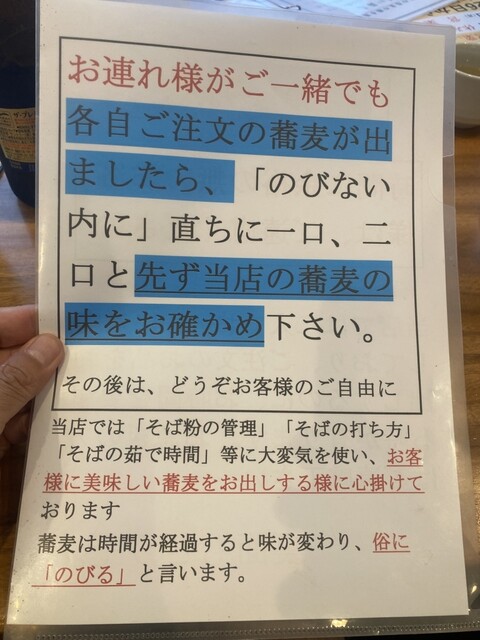 お連れ様がご一緒でも
各自ご注文の蕎麦が出
ましたら、「のびない
内に」直ちに一口、二
口と先ず当店の蕎麦の
味をお確かめ下さい。
その後は、どうぞお客様のご自由に
当店では「そば粉の管理」「そばの打ち方」
「そばの茹で時間」等に大変気を使い、お客
様に美味しい蕎麦をお出しする様に心掛けて
おります
蕎麦は時間が経過すると味が変わり、俗に
「のびる」と言います。